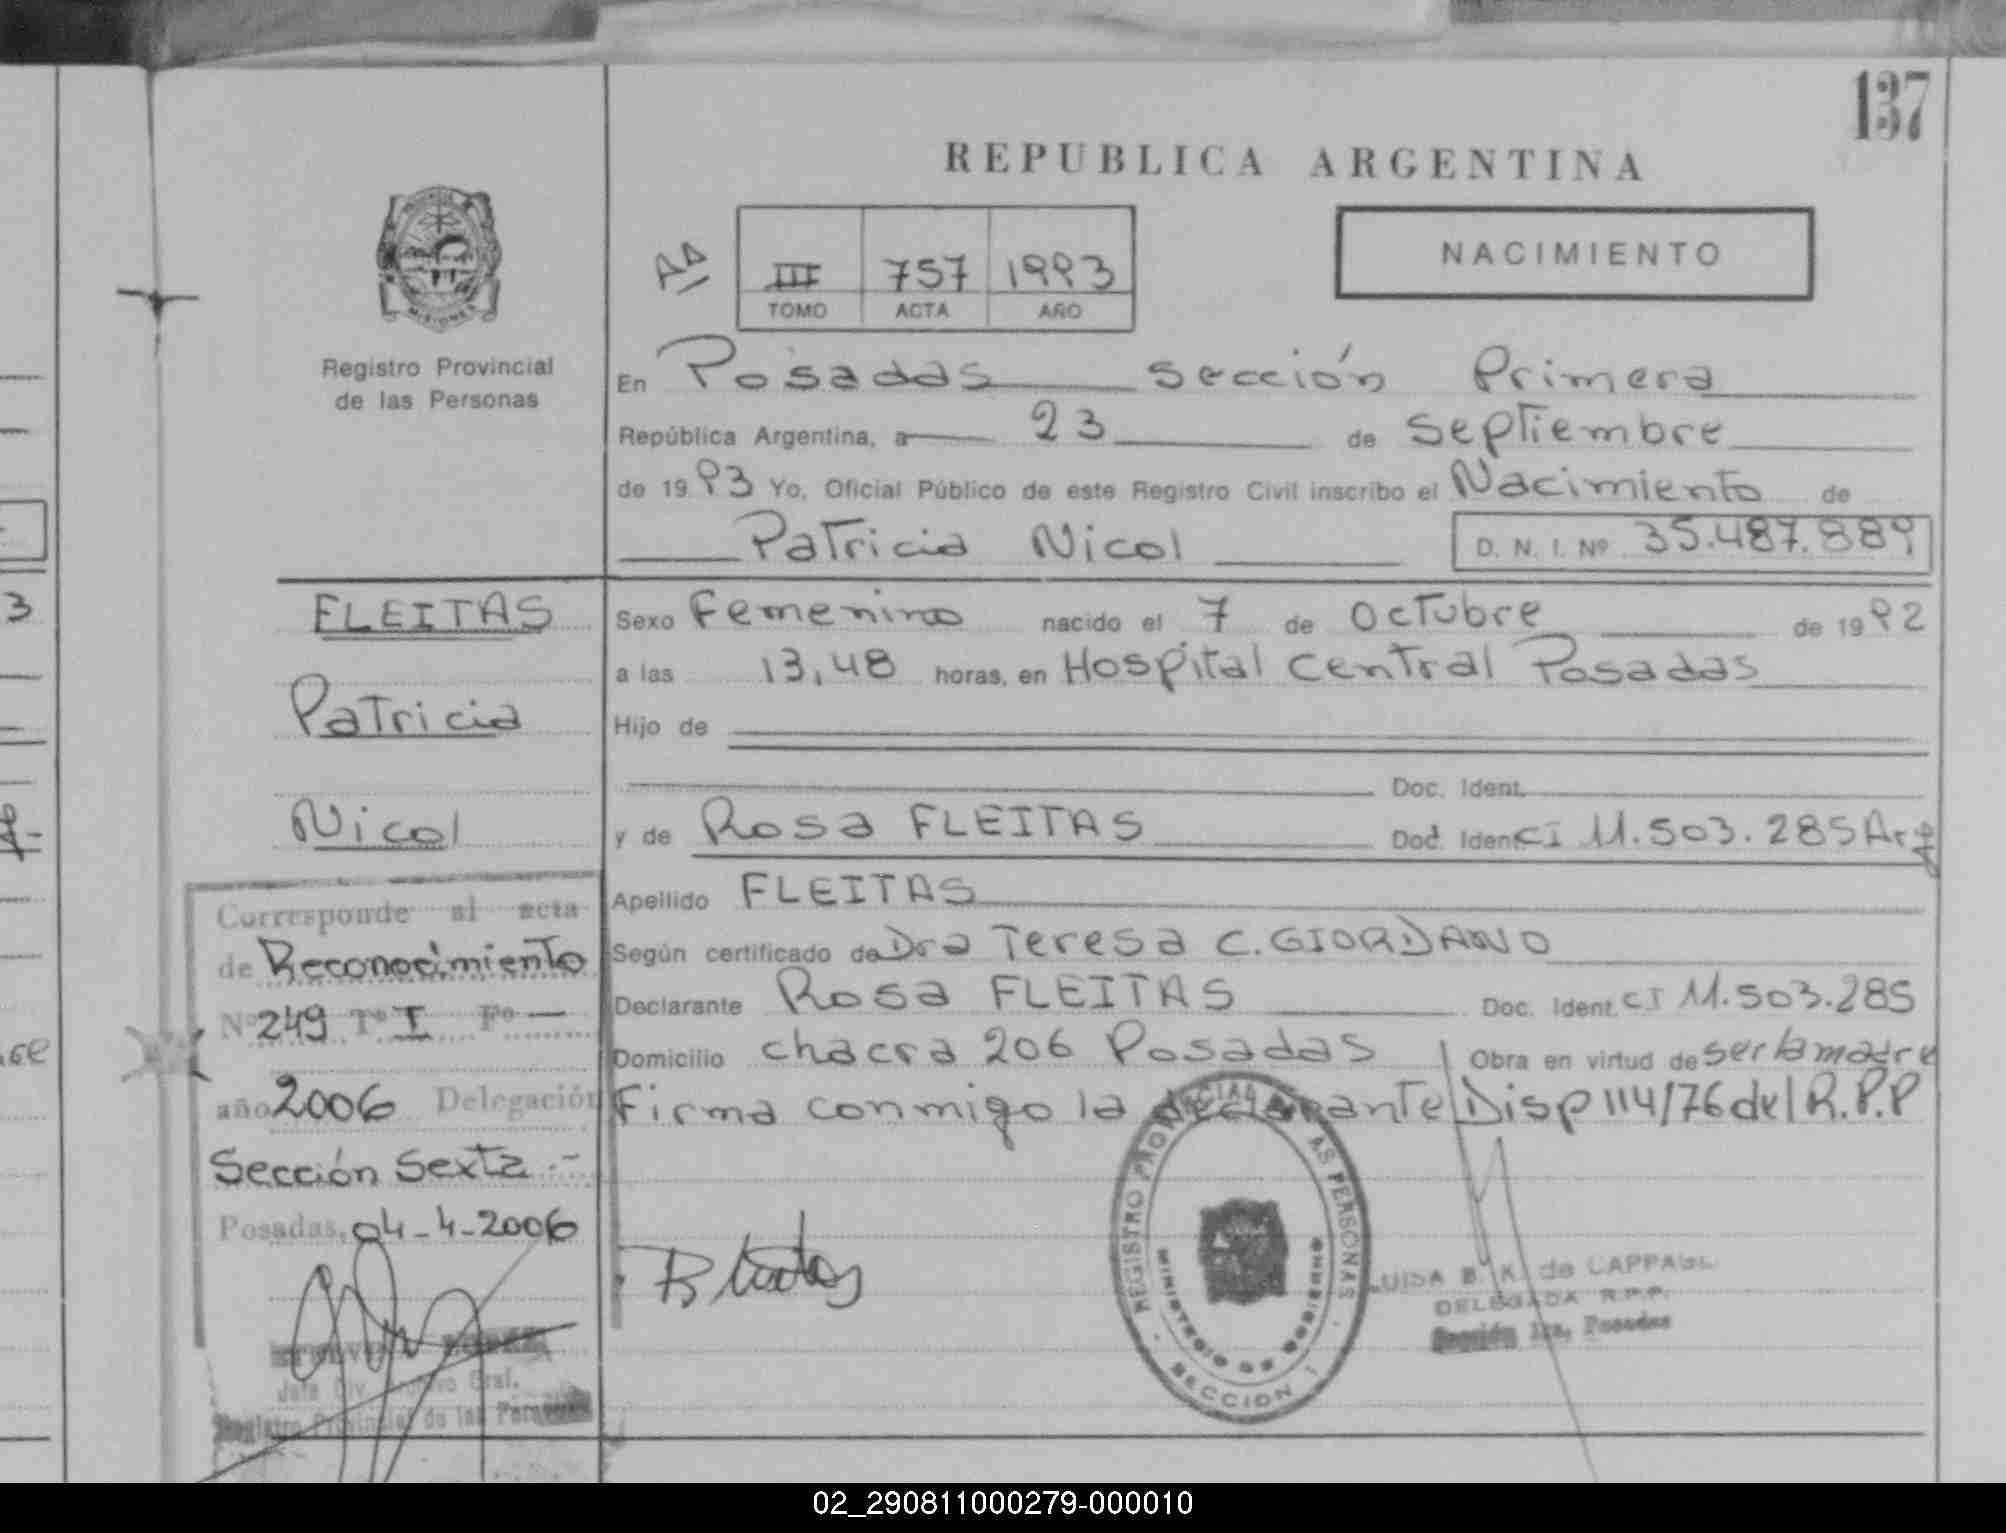 137
REPUBLICA ARGENTINA
NACIMIENTO
III 757 1993
TOMO ACTA AÑO
MISIONES
Registro Provincial
de las Personas
En Posadas sección Primera
República Argentina, a 23 de Septiembre
de 1993 Yo, Oficial Público de este Registro Civil inscribo el Nacimiento de
Patricia Nicol D. N. I. Nº 35.487.889
FLEITAS
Patricia
Nicol
Sexo Femenino nacido el 7 de Octubre de 1992
a las 13,48 horas, en Hospital Central Posadas
Hijo de
Doc. Ident.
y de Rosa FLEITAS Doc. Ident. CI 11.503.285 Arg
Apellido FLEITAS
Según certificado de Dra Teresa C. GIORDANO
Declarante Rosa FLEITAS Doc. Ident. CI 11.503.285
Domicilio chacra 206 Posadas Obra en virtud de ser la madre
Firma conmigo la declarante Disp 114/76 del R.P.P
Corresponde al acta
de Reconocimiento
Nº 249 Tº I Fº —
año 2006 Delegación
Sección Sexta.-
Posadas, 04-4-2006
Jefe Div. Archivo Gral.
Registro Provincial de las Personas
REGISTRO PROVINCIAL DE LAS PERSONAS
MINISTERIO DE GOBIERNO
SECCION 1
LUISA B. K. de
DELEGADA R.P.P.
Sección 1ra, Posadas
02_290811000279-000010